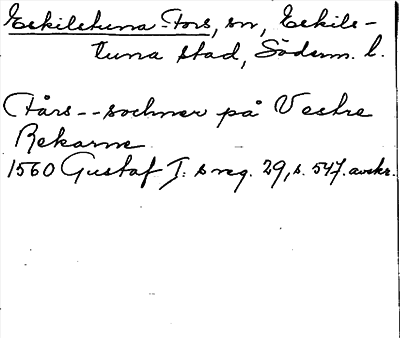 Eskilstuna-Fors, sn, Eskils-
tuna stad, Söderm. l.
Fårs--sochner på Vestre
Rekarne
1560 Gustaf I:s reg. 29, s. 547. avskr.